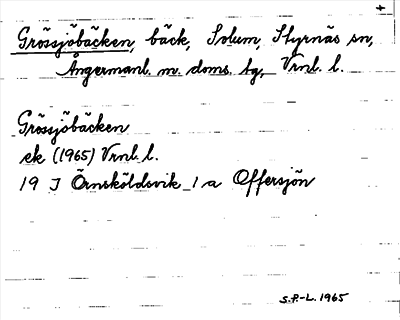 +
Grössjöbäcken, bäck, Solum, Styrnäs sn,
Ångermanl. m. doms. tg, Vrnl. l.
Grössjöbäcken
ek (1965) Vrnl. l.
19 J Örnsköldsvik 1 a Offersjön
S.P-L. 1965